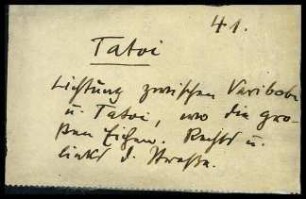 41.
Tatoi
Lichtung zwischen Varibobi
u. Tatoi, wo die gro-
ßen Eichen. Rechts u.
links d. Straße.